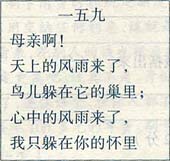 一五九
母亲啊！
天上的风雨来了，
鸟儿躲在它的巢里；
心中的风雨来了，
我只躲在你的怀里